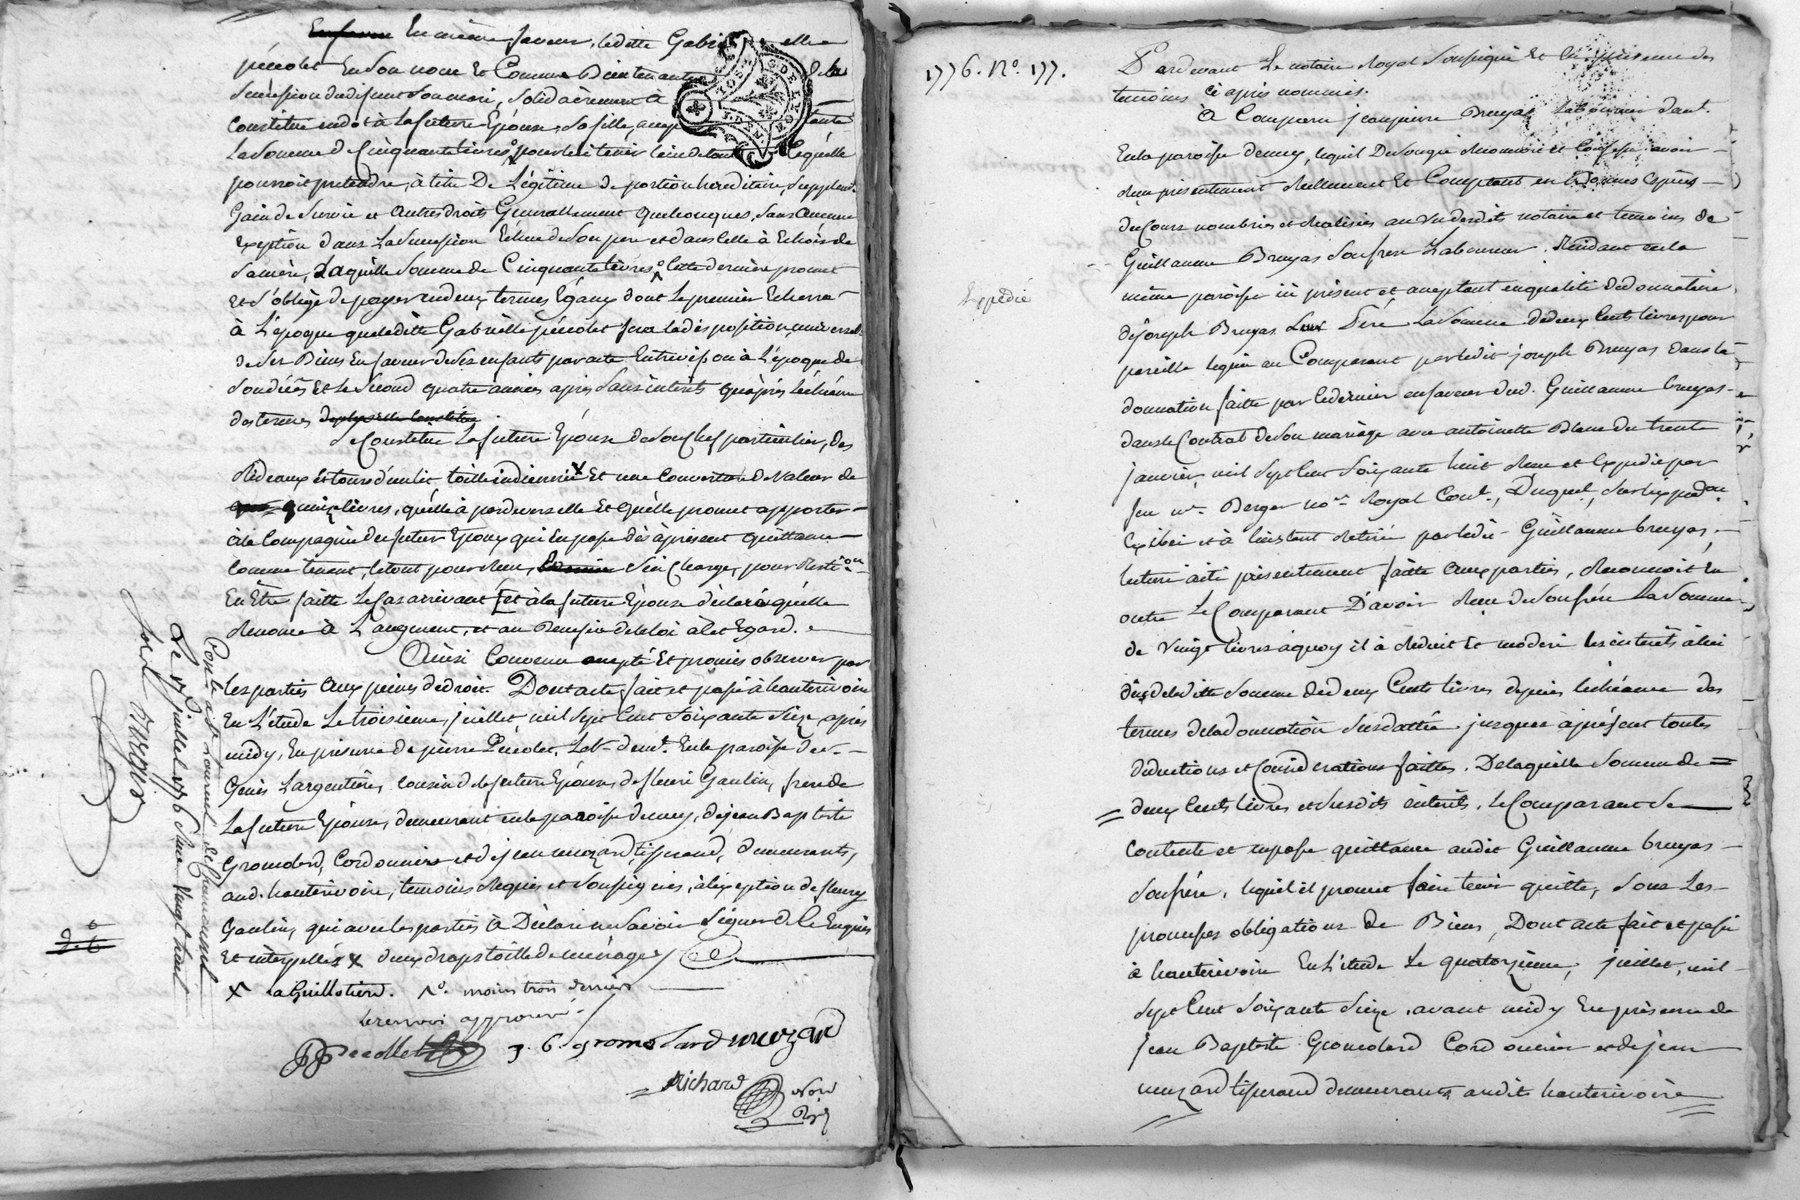 En même faveur, ladite Gabrielle
pécolet en son nom et comme bientenante de la
succession dudefunt son mari, solidairement a
constitué en dot à la future Epouse, sa fille, acceptante
la somme de Cinquante livres pour lui tenir lieu de tout laquelle
pourroit pretendre, à titre De Légitime de portion hereditaire, supplem.t
Gain de Survie et autres droits Generallement quelconques, sans aucune
exeption dans La Succession Echue de son pere et dans celle à Echoir de
sa mère, Laquelle somme de Cinquante livres cette derniere promet
et s'oblige de payer en deux termes Egaux dont le premier Echerra
à L'époque que ladite Gabrielle pécolet fera la disposition universelle
de ses Biens en faveur de ses enfants par acte Entre vifs ou à L'époque de
son décès et le Second quatre années après sans interets qu'après l'échéance
des termes
Se Constitue La future Epouse de son chef particulier, des
Rideaux et tours de lit toille indienne X Et une couverture de valeur de
quinze livres, qu'elle a pardevers elle Et qu'elle promet apporter
à la Compagnie du futur Epoux qui en passe dès à présent quittance
comme tenant, le tout pour reçu, s'en charge, pour Restion
En Etre faitte Le Cas arrivant et à la future Epouse déclaré qu'elle
Renonce à L'augment, et au Benefice de la loi à cet Egard.
Ainsi Convenu accepté Et promis observer par
les parties aux peines de droit. Dont acte fait et passé à hauterivoire
En L'étude Le troisieme juillet mil sept cent soixante seize après
midy, En presence de pierre Pécolet, Lab.r dem.t En la paroisse de S.t
Genis Largentière, cousin de la future Epouse, de fleuri Gaulin, frere de
La future Epouse, demeurant en la paroisse de mey, de jean Baptiste
Gromolard, Cordonnier et de jean muzard tisserand, demeurants,
aud. hauterivoire, temoins Requis et Soussignés, à l'exeption de fleury
Gaulin, qui avec les parties à Déclaré ne Savoir Signer de ce Enquis
Et interpellés X deux draps toille de ménage
X a Guillotiere. n.o moins trois derniers
le renvoi approuvé
PPecollet J. B. gromolard muzard
Richard
Not.
Roy.
Con.lé et
Le 17 juillet 1776 Reçu Vingt huit
1776. N.o 177.
Expédié
Pardevant Le notaire Royal Soussigné Et En présence des
temoins ci après nommés.
A Comparu jean pierre Bruyas Laboureur dem.t
En la paroisse de mey, lequel De Son gré Reconnoit et Confesse avoir
Reçu présentement Réellement Et Comptant en bonnes Espèces
de Cours nombrées et Réalisées au vu desdits notaire et temoins de
Guillaume Bruyas Son frere Laboureur Résidant en la
même paroisse ici présent et aceptant en qualité de donnataire
de joseph Bruyas Leur Père La Somme de deux Cents livres pour
pareille leguée au Comparant par ledit joseph Bruyas dans la
donnation faitte par ce dernier en faveur dud. Guillaume bruyas
dans le Contrat de son mariage avec antoinette Blanc du trente
janvier mil Sept Cent Soixante huit Reçu et Expedié par
feu M.e Berger no.re Royal Cont., Duquel, Sur l'expedon
Exibée et à l'instant Retirée par ledit Guillaume bruyas
lecture a été présentement faitte aux parties, Reconnoit En
outre Le Comparant D'avoir Reçu de Son frère La Somme
de Vingt livres à quoy il à Réduit Et modéré les intérêts à lui
dus de laditte Somme de deux Cents livres depuis l'echéance des
termes de la donnation Susdattée jusques à présent toutes
déductions et Considerations faittes. De laquelle Somme de
deux Cents livres et desdits intérêts, Le Comparant Se
contente et en passe quittance audit Guillaume bruyas
Son frère, lequel il promet faire tenir quitte, Sous Les
promesses obligations de Biens, Dont acte fait et passé
à hauterivoire En L'étude Le quatorzieme, juillet, mil
Sept Cent Soixante Seize, avant midy En présence de
Jean Baptiste Gromolard Cordonnier et de jean
muzard tisserand demeurants audit hauterivoire